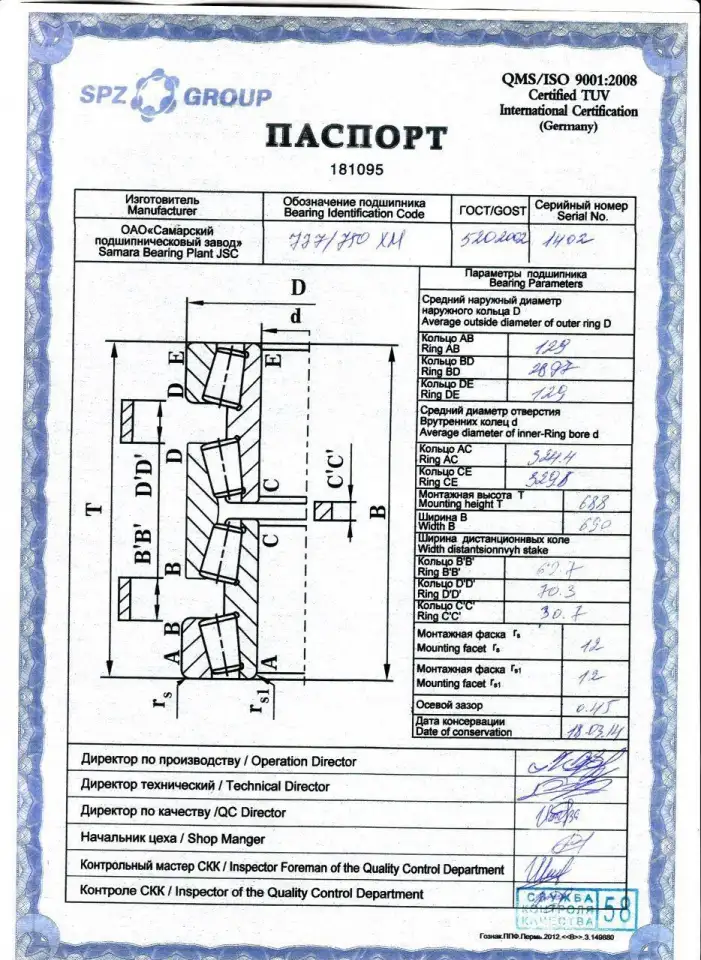 SPZ GROUP
QMS/ISO 9001:2008
Certified TUV
International Certification
(Germany)
ПАСПОРТ
181095
Изготовитель
Manufacturer
Обозначение подшипника
Bearing Identification Code
ГОСТ/GOST
Серийный номер
Serial No.
ОАО«Самарский
подшипнический завод»
Samara Bearing Plant JSC
777/750 ХМ
5202002
1402
Параметры подшипника
Bearing Parameters
Средний наружный диаметр
наружного кольца D
Average outside diameter of outer ring D
Кольцо АВ
Ring AB
129
Кольцо BD
Ring BD
Кольцо DE
Ring DE
129
Средний диаметр отверстия
Врутренних колец d
Average diameter of inner-Ring bore d
Кольцо АС
Ring AC
324.4
Кольцо СЕ
Ring CE
Монтажная высота T
Mounting height T
688
Ширина В
Width B
690
Ширина дистанционнвых коле
Width distantsionnvyh stake
Кольцо B'B'
Ring B'B'
62.7
Кольцо D'D'
Ring D'D'
70.3
Кольцо C'C'
Ring C'C'
30.7
Монтажная фаска rs
Mounting facet rs
12
Монтажная фаска rs1
Mounting facet rs1
12
Осевой зазор
0.45
Дата консервации
Date of conservation
18.03.14
D
d
E
E
D
D
C
C
B
B
A
A
T
B
D'D'
B'B'
C'C'
rs
rs1
Директор по производству / Operation Director
Директор технический / Technical Director
Директор по качеству /QC Director
Начальник цеха / Shop Manger
Контрольный мастер СКК / Inspector Foreman of the Quality Control Department
Контроле СКК / Inspector of the Quality Control Department
СЛУЖБА
КОНТРОЛЯ
КАЧЕСТВА
58
Гознак.ППФ.Пермь.2012.<<В>>.3.149880